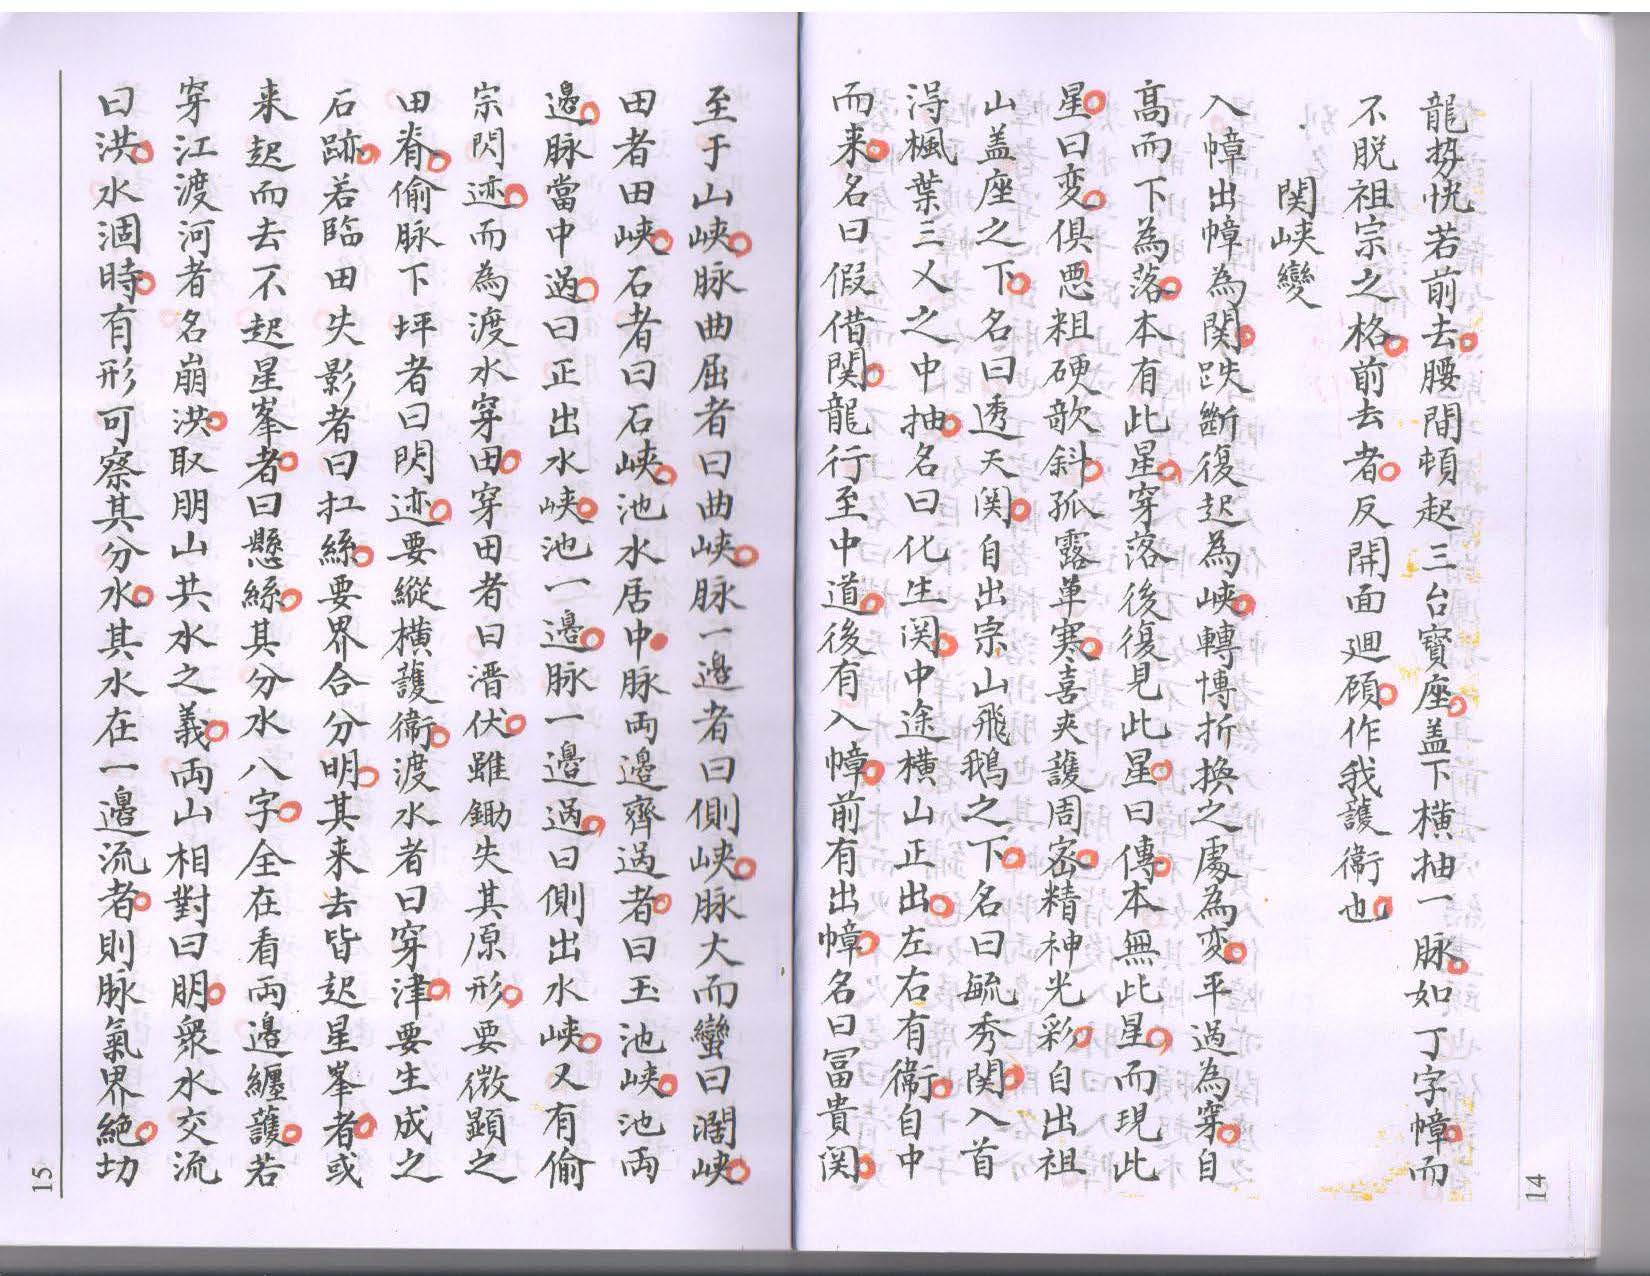 龍勢恍若前去腰間頓起三台寳座盖下橫抽一脉如丁字幛而
不脱祖宗之格前去者反開面廻顧作我護衛也
関峽變
入幛出幛為関跌斷復起為峽轉博折換之處為变平過為穿自
髙而下為落本有此星穿落後復見此星曰傳本無此星而現此
星曰变俱悪粗硬欹斜孤露单寒喜夾護周宻精神光彩自出祖
山盖座之下名曰透天関自出宗山飛鵝之下名曰毓秀関入首
淂楓葉三乂之中抽名曰化生関中途横山正出左右有衛自中
而来名曰假借関龍行至中道後有入幛前有出幛名曰冨貴関
14
至于山峽脉曲屈者曰曲峽脉一邊者曰側峽脉大而蠻曰濶峽
田者田峽石者曰石峽池水居中脉両邊齊過者曰玉池峽池両
邊脉當中過曰正出水峽池一邊脉一邊過曰側出水峽又有偷
宗閃迹而為渡水穿田穿田者曰潛伏雖鋤失其原形要微顯之
田脊偷脉下坪者曰閃迹要縱横護衛渡水者曰穿津要生成之
石跡若臨田失影者曰扛絲要界合分明其来去皆起星峯者或
来起而去不起星峯者曰懸絲其分水八字全在看両邊纒護若
穿江渡河者名崩洪取朋山共水之義両山相對曰朋衆水交流
曰洪水涸時有形可察其分水其水在一邊流者則脉氣界絶切
15